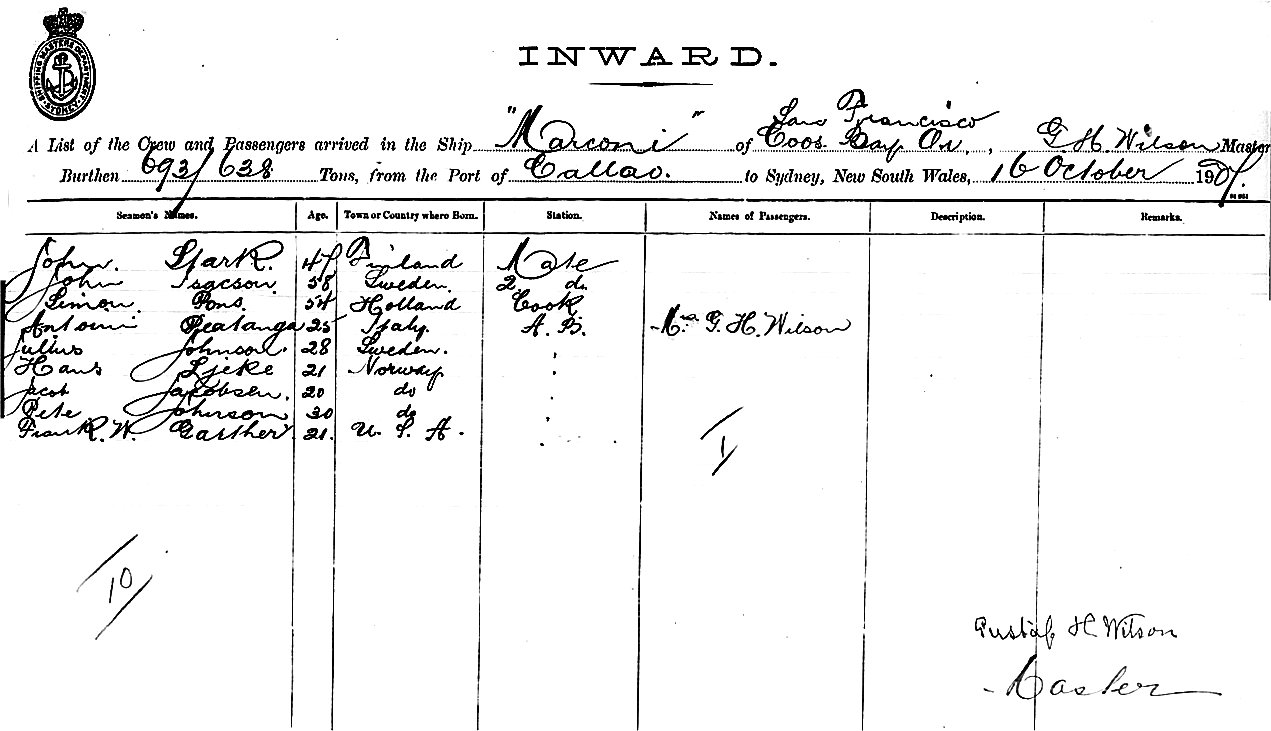 SHIPPING MASTERS DEPARTMENT SYDNEY
INWARD.
San Francisco
A List of the Crew and Passengers arrived in the Ship "Marconi" of Coos Bay Or., G. H. Wilson Master
Burthen 693/638 Tons, from the Port of Callao. to Sydney, New South Wales, 16 October 190
Seamen's Names. Age. Town or Country where Born. Station. Names of Passengers. Description. Remarks.
John. Stark. 47 Finland Mate
John Isacson. 58 Sweden. 2. do.
Simon Pons. 54 Holland Cook
Antoini 25 Italy. A. B. Mrs. G. H. Wilson
Julius Johnson. 28 Sweden. "
Hans Ljeke 21 Norway "
Jacob Jacobsen. 20 do "
Pete Johnson 30 do "
Frank. W. Gaither 21. U. S. A. "
1
10
Gustaf H Wilson
Master